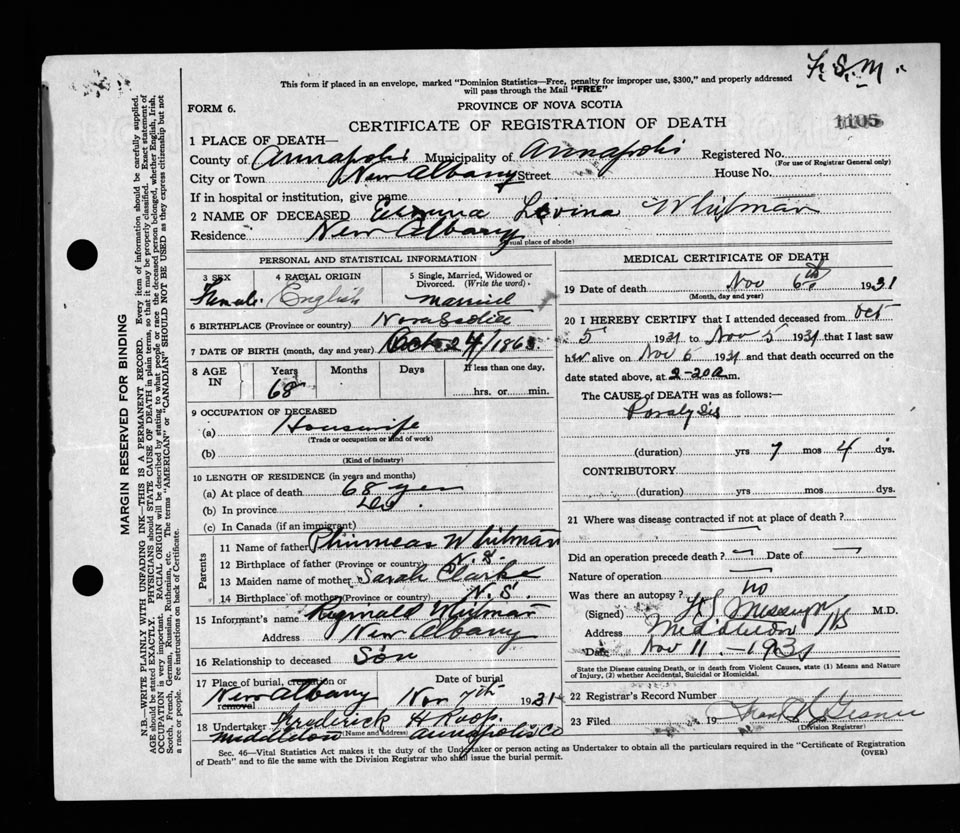 F. S. M.
This form if placed in an envelope, marked "Dominion Statistics—Free, penalty for improper use, $300," and properly addressed
will pass through the Mail "FREE"
FORM 6.
PROVINCE OF NOVA SCOTIA
CERTIFICATE OF REGISTRATION OF DEATH
1105
1 PLACE OF DEATH—
County of Annapolis Municipality of Annapolis Registered No.
(For use of Registrar General only)
City or Town New Albany Street House No.
If in hospital or institution, give name
2 NAME OF DECEASED Lovina Whitman
Residence New Albany
(usual place of abode)
PERSONAL AND STATISTICAL INFORMATION
3 SEX 4 RACIAL ORIGIN 5 Single, Married, Widowed or Divorced. (Write the word).
Female. English Married
6 BIRTHPLACE (Province or country) Nova Scotia
7 DATE OF BIRTH (month, day and year) Oct 24/1863
8 AGE IN Years Months Days If less than one day,
68 hrs. or min.
9 OCCUPATION OF DECEASED
(a) Housewife
(Trade or occupation or kind of work)
(b)
(Kind of industry)
10 LENGTH OF RESIDENCE (in years and months)
(a) At place of death 68 yrs
(b) In province Do.
(c) In Canada (if an immigrant)
Parents
11 Name of father Phinneas Whitman
12 Birthplace of father (Province or country) N.S.
13 Maiden name of mother Sarah Clarke
14 Birthplace of mother (Province or country) N.S.
15 Informant's name Reginald Whitman
Address New Albany
16 Relationship to deceased Son
17 Place of burial, cremation or removal Date of burial
New Albany Nov 7th 1931
18 Undertaker Frederick H Roop.
(Name and address)
Middleton Annapolis Co
MEDICAL CERTIFICATE OF DEATH
19 Date of death Nov 6th 1931
(Month, day and year)
20 I HEREBY CERTIFY that I attended deceased from Oct
5 1931 to Nov 5 1931 that I last saw
her alive on Nov 6 1931 and that death occurred on the
date stated above, at 2-20 a.m.
The CAUSE OF DEATH was as follows:—
Paralysis
(duration) yrs 7 mos 4 dys.
CONTRIBUTORY
(duration) yrs mos dys.
21 Where was disease contracted if not at place of death?
Did an operation precede death? — Date of —
Nature of operation —
Was there an autopsy? no
(Signed) Messenger M.D.
Address Middleton NS
Date Nov 11 - 1931
State the Disease causing Death, or in death from Violent Causes, state (1) Means and Nature
of Injury, (2) whether Accidental, Suicidal or Homicidal.
22 Registrar's Record Number
23 Filed 19
(Division Registrar)
Sec. 46—Vital Statistics Act makes it the duty of the Undertaker or person acting as Undertaker to obtain all the particulars required in the "Certificate of Registration
of Death" and to file the same with the Division Registrar who shall issue the burial permit.
(OVER)
MARGIN RESERVED FOR BINDING
N.B.—WRITE PLAINLY WITH UNFADING INK—THIS IS A PERMANENT RECORD. Every item of information should be carefully supplied.
AGE should be stated EXACTLY. PHYSICIANS should STATE CAUSE OF DEATH in plain terms, so that it may be properly classified. Exact statement of
OCCUPATION is very important. RACIAL ORIGIN will be described by stating to what people or race the deceased person belonged, whether English, Irish,
Scotch, French, German, Russian, Ruthenian, etc. The terms "AMERICAN" or "CANADIAN" SHOULD NOT BE USED as they express citizenship but not
a race or people. See instructions on back of Certificate.